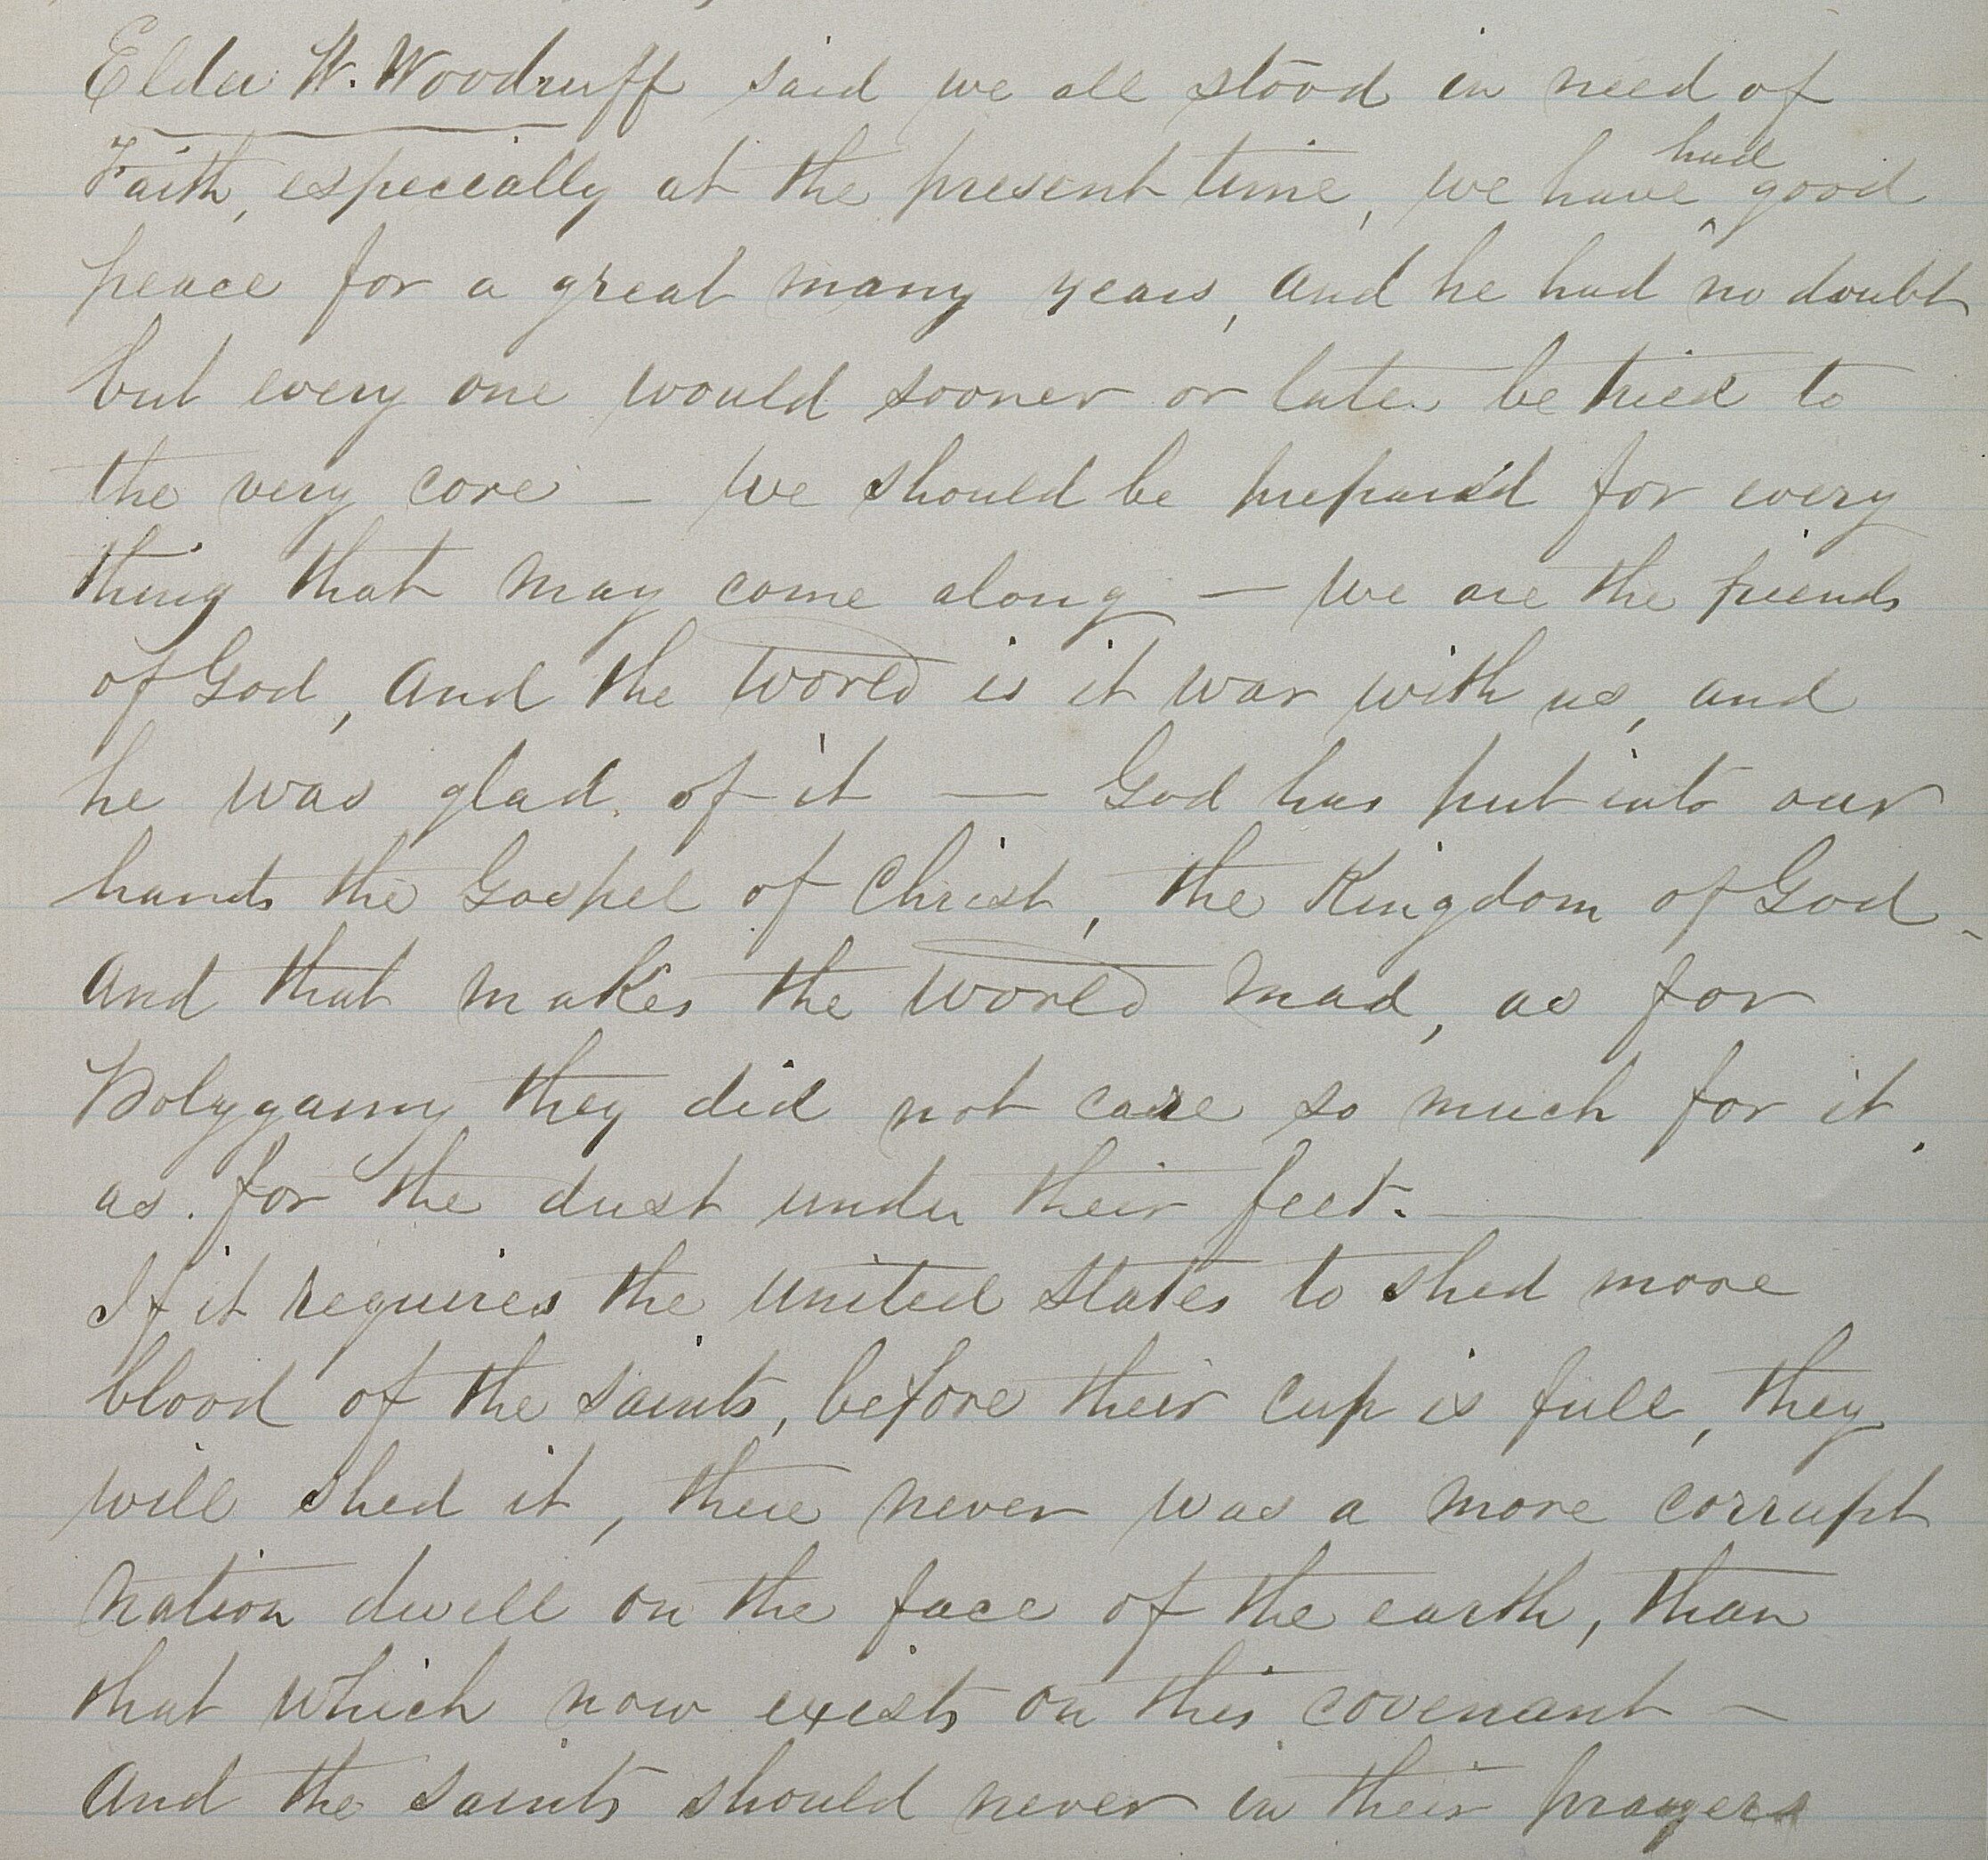 Elder W. Woodruff said we all stood in need of
Faith, especially at the present time, we have ^had good
peace for a great many years, and he had no doubt
but every one would sooner or later be tried to
the very core — We should be prepar'd for every
thing that may come along — We are the friends
of God, and the World is it war with us, and
he was glad of it — God has put into our
hands the Gospel of Christ, the Kingdom of God -
And that makes the World mad, as for
Polygamy they did not care so much for it,
as for the dust under their feet. —
If it requires the United States to shed more
blood of the saints, before their cup is full, they
will shed it, there never was a more corrupt
Nation dwell on the face of the earth, than
that which now exists on this covenant —
And the saints should never in their prayers